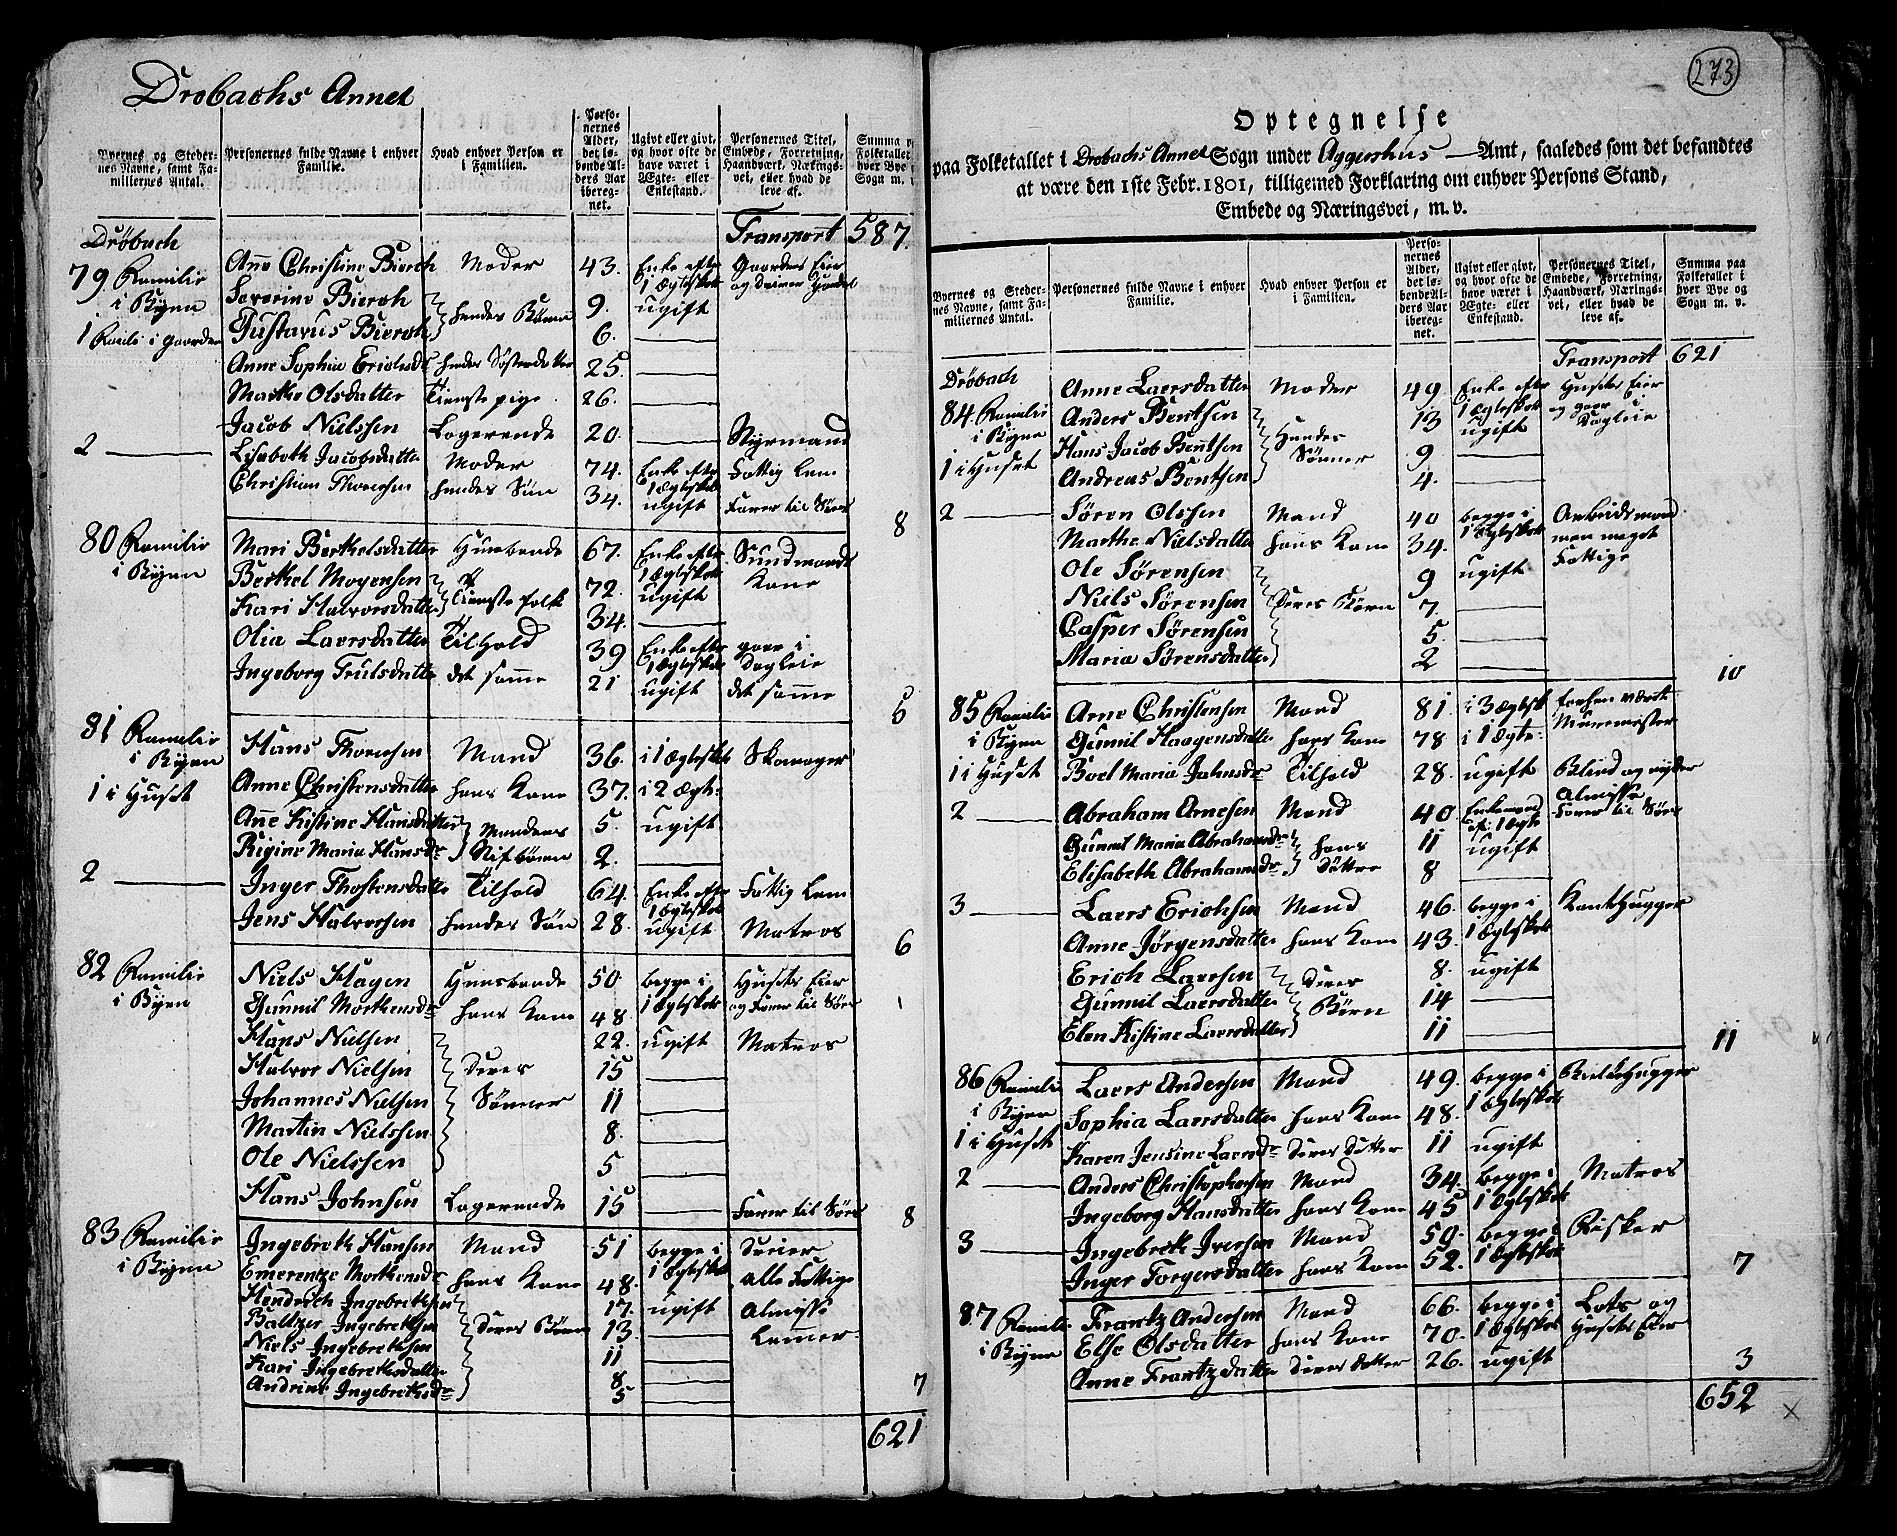 Drobachs Annex
Byernes og Stedernes Navne, samt Familiernes Antal.
Personernes fulde Navne i enhver Familie.
Hvad enhver Person er i Familien.
Personernes Alder, det løbende Alders Aar iberegnet.
Ugivt eller givt, og hvor ofte de have været i Ægte- eller Enkestand.
Personernes Titel, Embede, Forretning, Haandværk, Næringsvei, eller hvad de leve af.
Summa Folketallet hver Bye Sogn m.
Dröbach Transport 587.
79 Familie Anne Christine Bierch Moder 43. Enke efter Gaardens Eier
i Byen 1 Ægteskab
Severine Bierch 9. ugift
1 Famili i gaarden Gustavus Bierch hendes Børn 6.
Anne Sophia hendes Søsterdatter 25.
Marthe Olsdatter Tienstepige 26.
Jacob Nielssen Logerende 20. Styrmand
2 Lisebeth Jacobsdatter Moder 74. Enke efter 1 Ægteskab Fattig Lem
Christian Thoresen hendes Søn 34. ugift Farer til Søes
8
80 Familie Mari Berthelsdatter Huusbonde 67. Enke efter Sundmands
i Byen 1 Ægteskab Kone
Berthel Mogensen Tienstefolk 72. ugift
Kari Halvorsdatter 34.
Olia Laersdatter Tilhold 39 Enke efter 1 Ægteskab gaar i Dagleie
Ingeborg Trulsdatter det samme 21 ugift det samme
5
81 Familie Hans Thoresen Mand 36. i 1 Ægteskab Skomager
i Byen
1 i Huset Anne Christensdatter hans Kone 37. i 2 Ægt:
Anne Kistine Hansdatter Mandens 5. ugift
Rigine Maria Hansdr Stifbørn 2.
2 Inger Thostensdatter Tilhold 64. Enke efter 1 Ægteskab Fattig Lem
Jens Halvorsen hendes Søn 28. ugift Matros
6
82 Familie Niels Hagen Huusbonde 50 begge i Husets Eier
i Byen Gunnil Morthensdr hans Kone 48 1 Ægteskab og Farer til Søes
Hans Nielsen 22. ugift Matros
Halvor Nielsen Deres 15
Johannes Nielsen Sønner 11
Martin Nielssen 8.
Ole Nielssen 5
Hans Johnsen Logerende 15 Farer til Søes
8
83 Familie Ingebreth Hansen Mand 51 begge i
i Byen Emerentze Morthensdr hans Kone 48. 1 Ægteskab alle Fattige
Hendrich Ingebrethsen 17. ugift Almisse
Baltzer Ingebrethsen Deres Børn 13 Lemmer
Niels Ingebrethsen 11
Kari Ingebrethsdatter 8
Andrine Ingebrethsdr 5
7
621
273
Optegnelse
paa Folketallet i Drobachs Annex Sogn under Aggershus Amt, saaledes som det befandtes
at være den 1ste Febr. 1801, tilligemed Forklaring om enhver Persons Stand,
Embede og Næringsvei, m. v.
Byernes og Stedernes Navne, samt Familiernes Antal.
Personernes fulde Navne i enhver Familie.
Hvad enhver Person er i Familien.
Personernes Alder, det løbende Alders Aar iberegnet.
Ugivt eller givt, og hvor ofte de have været i Ægte- eller Enkestand.
Personernes Titel, Embede, Forretning, Haandværk, Næringsvei, eller hvad de leve af.
Summa paa Folketallet i hver Bye og Sogn m. v.
Transport 621
Dröbach Anne Laersdatter Moder 49. Enke efter Husets Eier
84 Familie 1 Ægteskab og gaar i Dagleie
i Byen Anders Bentsen Hendes 13 ugift
1 i Huset Hans Jacob Bentsen Sønner 9
Andreas Bentsen 4.
2 Søren Olssen Mand 40 begge i Arbeidsmand
Marthe Nielsdatter hans Kone 34. 1 Ægteskab men meget
Ole Sørensen 9 ugift Fattige
Niels Sørensen Deres Børn 7.
Casper Sørensen 5.
Maria Sørensdatter 2
10
85 Familie Arne Christensen Mand 81. i 3 Ægtesk forhen været
i Byen Gunnil Haagensdatter hans Kone 78 i 1 Ægte: Muurmester
1 i Huset Boel Maria Johnsdr Tilhold 28. ugift Blind og nyder Almisse
2 Abraham Arnesen Mand 40 Enkemand eft. 1 Ægte Farer til Søes
Gunnil Maria Abrahamsdr hans 11 ugift
Elisabeth Abrahamsdr Døttre 8
3 Laers Erichsen Mand 46. begge i
Anne Jørgensdatter hans Kone 43. 1 Ægteskab
Erich Laersen Deres 8. ugift
Gunnil Laersdatter Børn 14
Elen Kistine Laersdatter 11
11
86 Familie Laers Andersen Mand 49. begge i
i Byen Sophia Laersdatter hans Kone 48. 1 Ægteskab
1 i Huset Karen Jensine Laersdr Deres Datter 11 ugift
2 Anders Christophersen Mand 34. begge i Matros
Ingeborg Hansdatter hans Kone 45 1 Ægteskab
3 Ingebreth Iversen Mand 50. begge i Fisker
Inger Torgersdatter hans Kone 52. 1 Ægteskab
7
87 Familie Frantz Andersen Mand 66. begge i Lots og
i Byen Else Olsdatter hans Kone 70. 1 Ægteskab Husets Eier
Anne Frantzdatter Deres datter 26. ugift
3
652